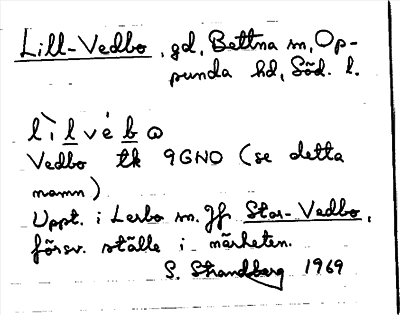 Lill-Vedbo, gd, Bettna sn, Op-
punda hd, Söd. l.
lìlvébω
Vedbo tk 9GNO (se detta
namn)
Uppt. i Lerbo sn. Jfr Stor-Vedbo,
försv. ställe i närheten.
S. Strandberg 1969